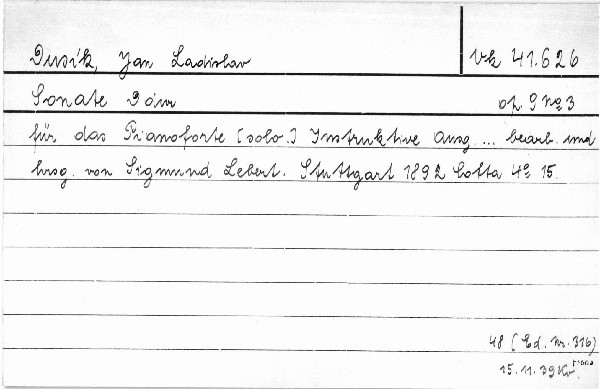 Dusík, Jan Ladislav vk 41.626
Sonate D dur op. 9 No 3
für das Pianoforte (solo.) Instruktive Ausg. ... bearb. und
hrsg. von Sigmund Lebert. Stuttgart 1892 Cotta 4º 15.
48 (Ed. Nr. 316)
15.11.39